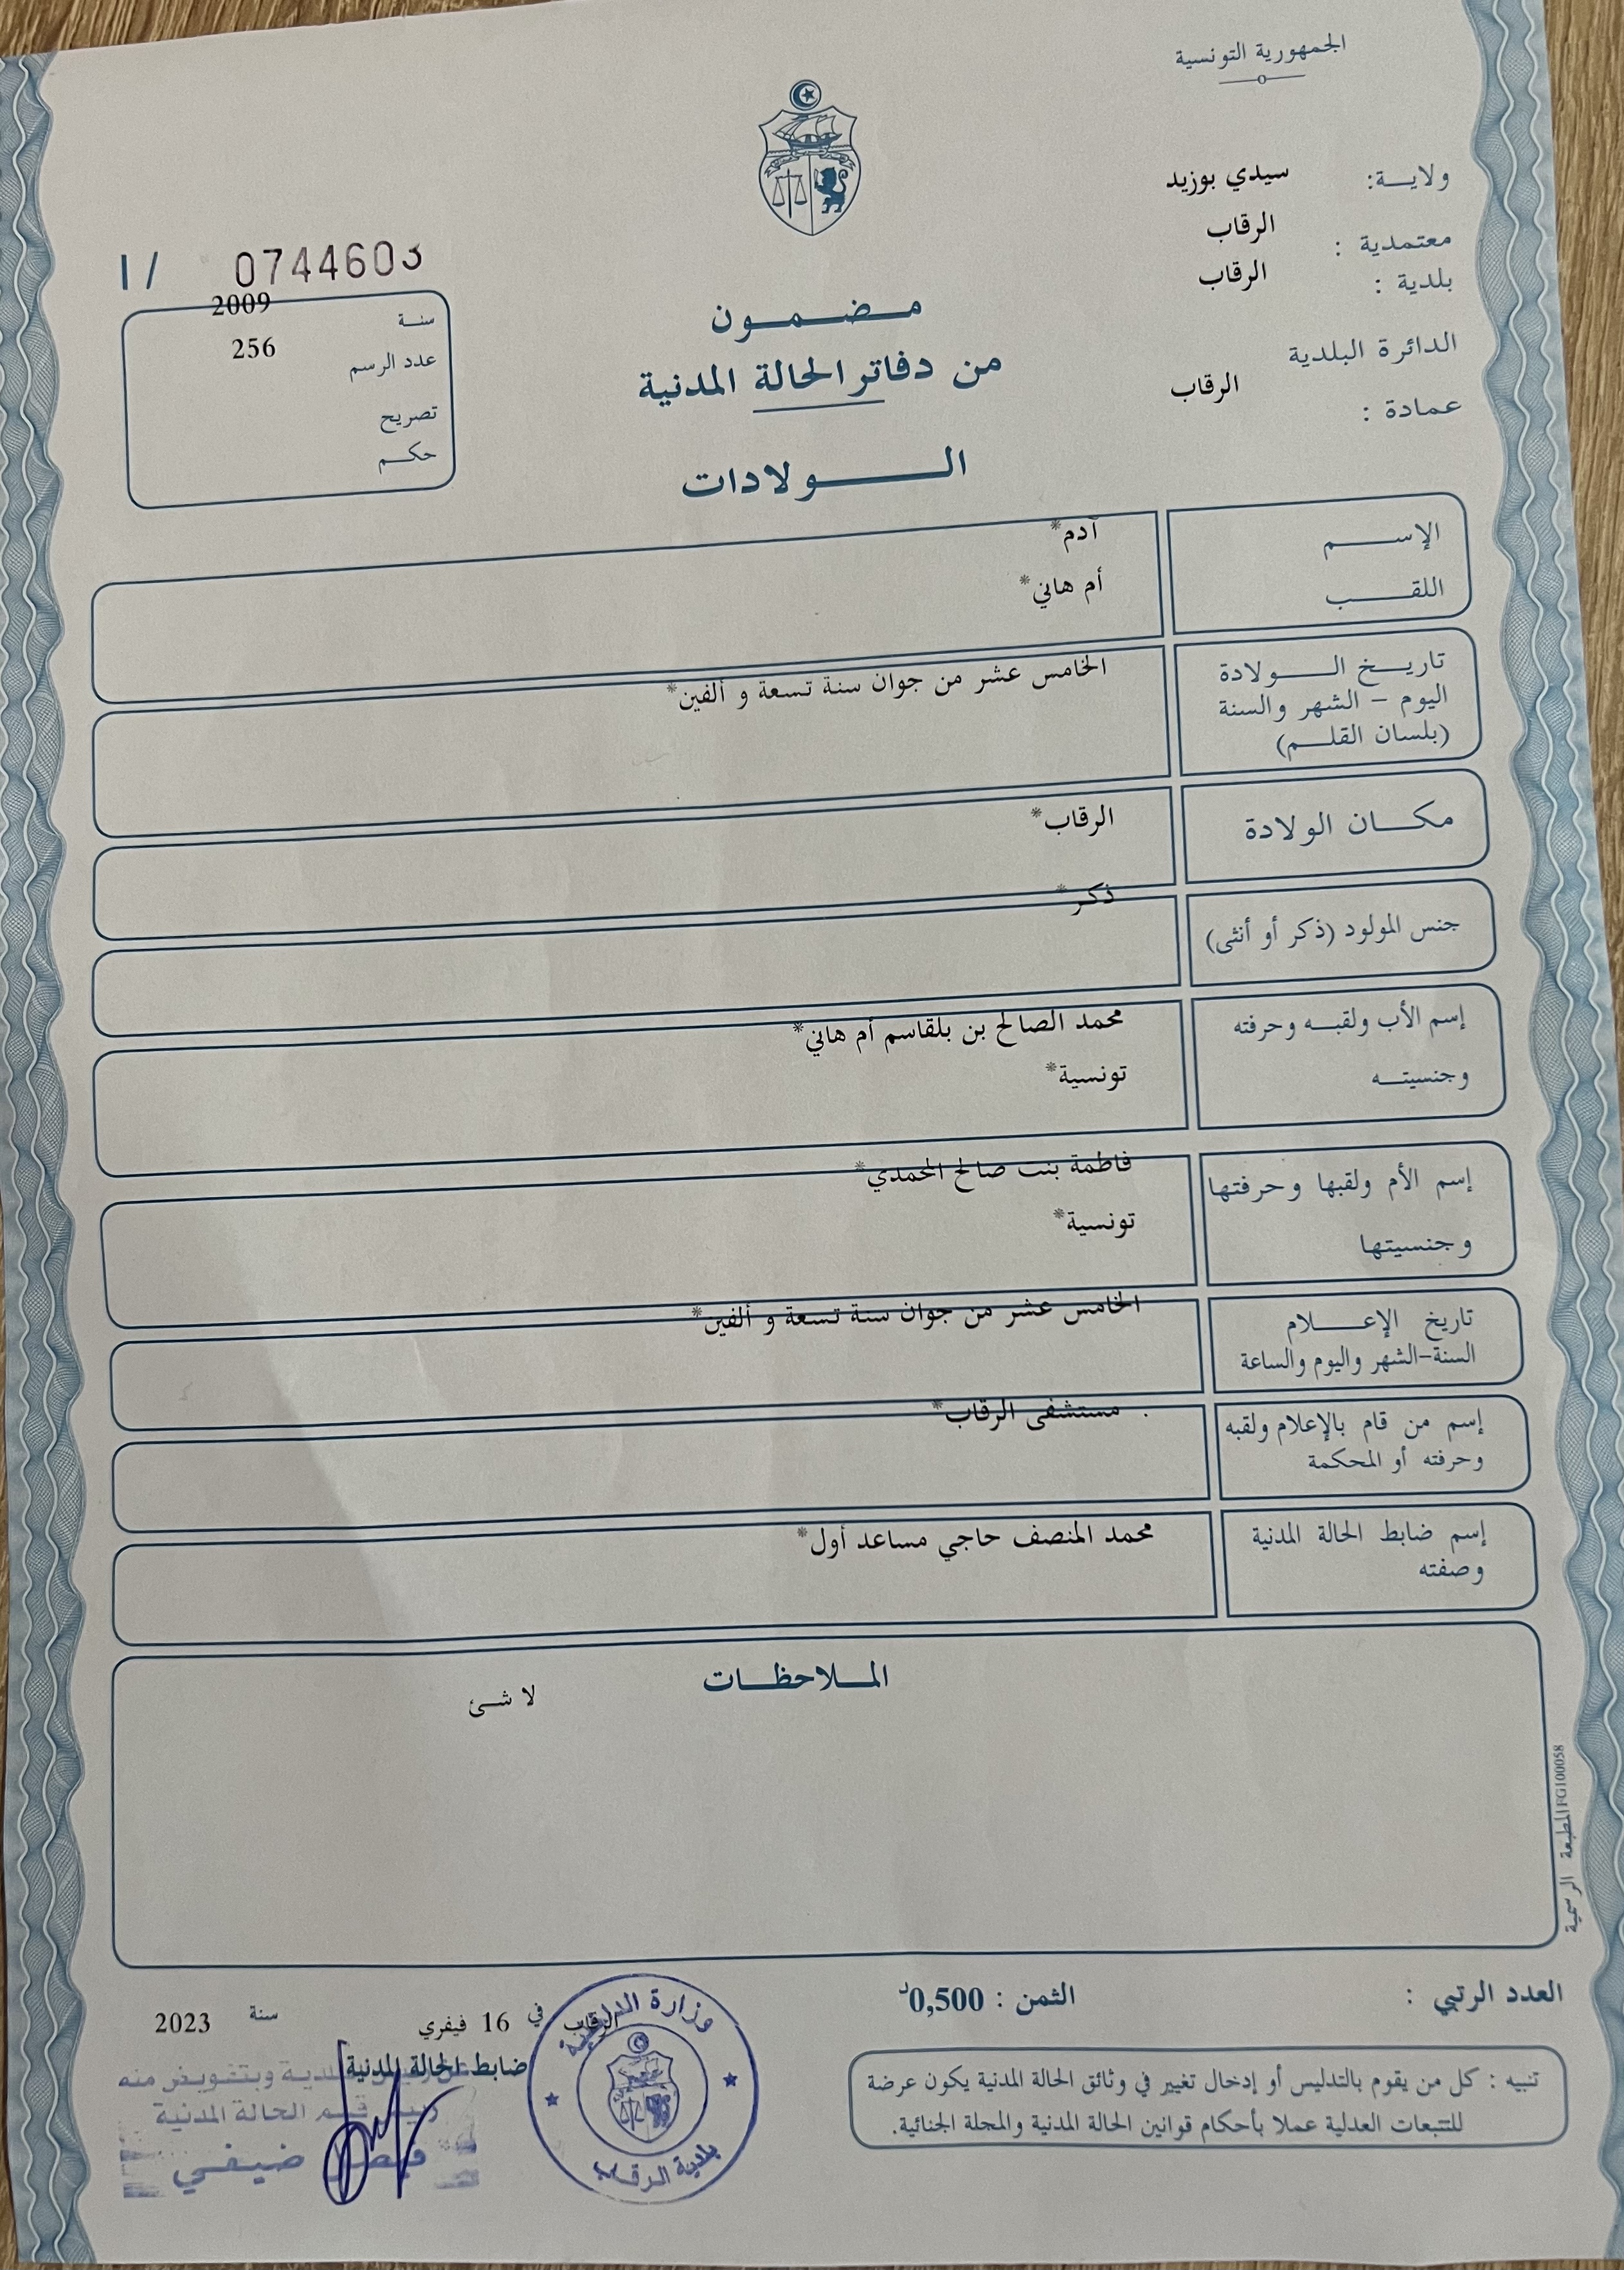 الجمهورية التونسية
ولايـــة: سيدي بوزيد
معتمدية : الرقاب
بلدية : الرقاب
الدائرة البلدية
عمادة : الرقاب
I / 0744603
سنــة 2009
عدد الرسم 256
تصريح
حكــم
مــضــمــون
من دفاتر الحالة المدنية
الــــولادات
الإســــــم آدم*
اللقــــــب أم هاني*
تاريــــخ الــــــولادة الخامس عشر من جوان سنة تسعة و ألفين*
اليوم - الشهر والسنة
(بلسان القلــم)
مكـــــان الولادة الرقاب*
جنس المولود (ذكر أو أنثى) ذكر*
إسم الأب ولقبــه وحرفته محمد الصالح بن بلقاسم أم هاني*
وجنسيتــه تونسية*
إسم الأم ولقبها وحرفتها فاطمة بنت صالح المحمدي*
وجنسيتها تونسية*
تاريخ الإعــــــلام الخامس عشر من جوان سنة تسعة و ألفين*
السنة-الشهر واليوم والساعة
إسم من قام بالإعلام ولقبه مستشفى الرقاب*
وحرفته أو المحكمة
إسم ضابط الحالة المدنية محمد المنصف حاجي مساعد أول*
وصفته
المــلاحظــات
لا شـــئ
المطبعة الرسمية FG100058
العدد الرتبي :
الثمن : 0,500د
الرقاب في 16 فيفري سنة 2023
ضابط الحالة المدنية
وبتفويض منه
رئيس قسم الحالة المدنية
ضيفي
وزارة الداخلية
بلدية الرقاب
تنبيه : كل من يقوم بالتدليس أو إدخال تغيير في وثائق الحالة المدنية يكون عرضة
للتتبعات العدلية عملا بأحكام قوانين الحالة المدنية والمجلة الجنائية.